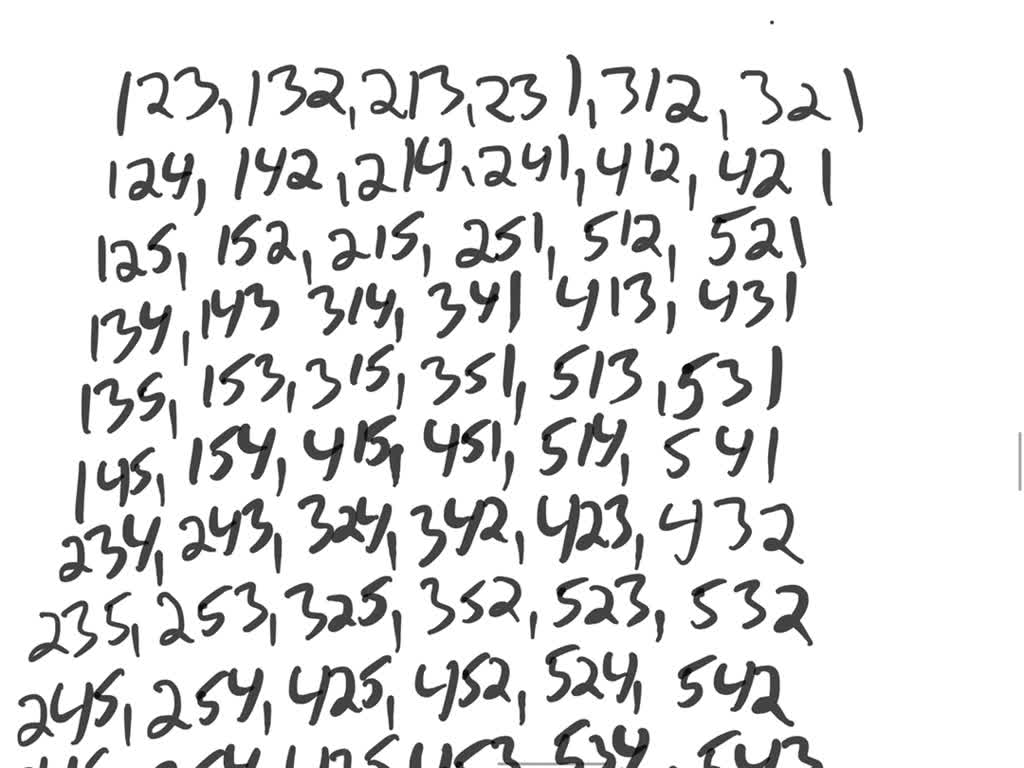 123, 132, 213, 231, 312, 321
124, 142, 214, 241, 412, 421
125, 152, 215, 251, 512, 521
134, 143 314, 341 413, 431
135, 153, 315, 351, 513, 531
145, 154, 415, 451, 514, 541
234, 243, 324, 342, 423, 432
235, 253, 325, 352, 523, 532
245, 254, 425, 452, 524, 542
453 534, 543